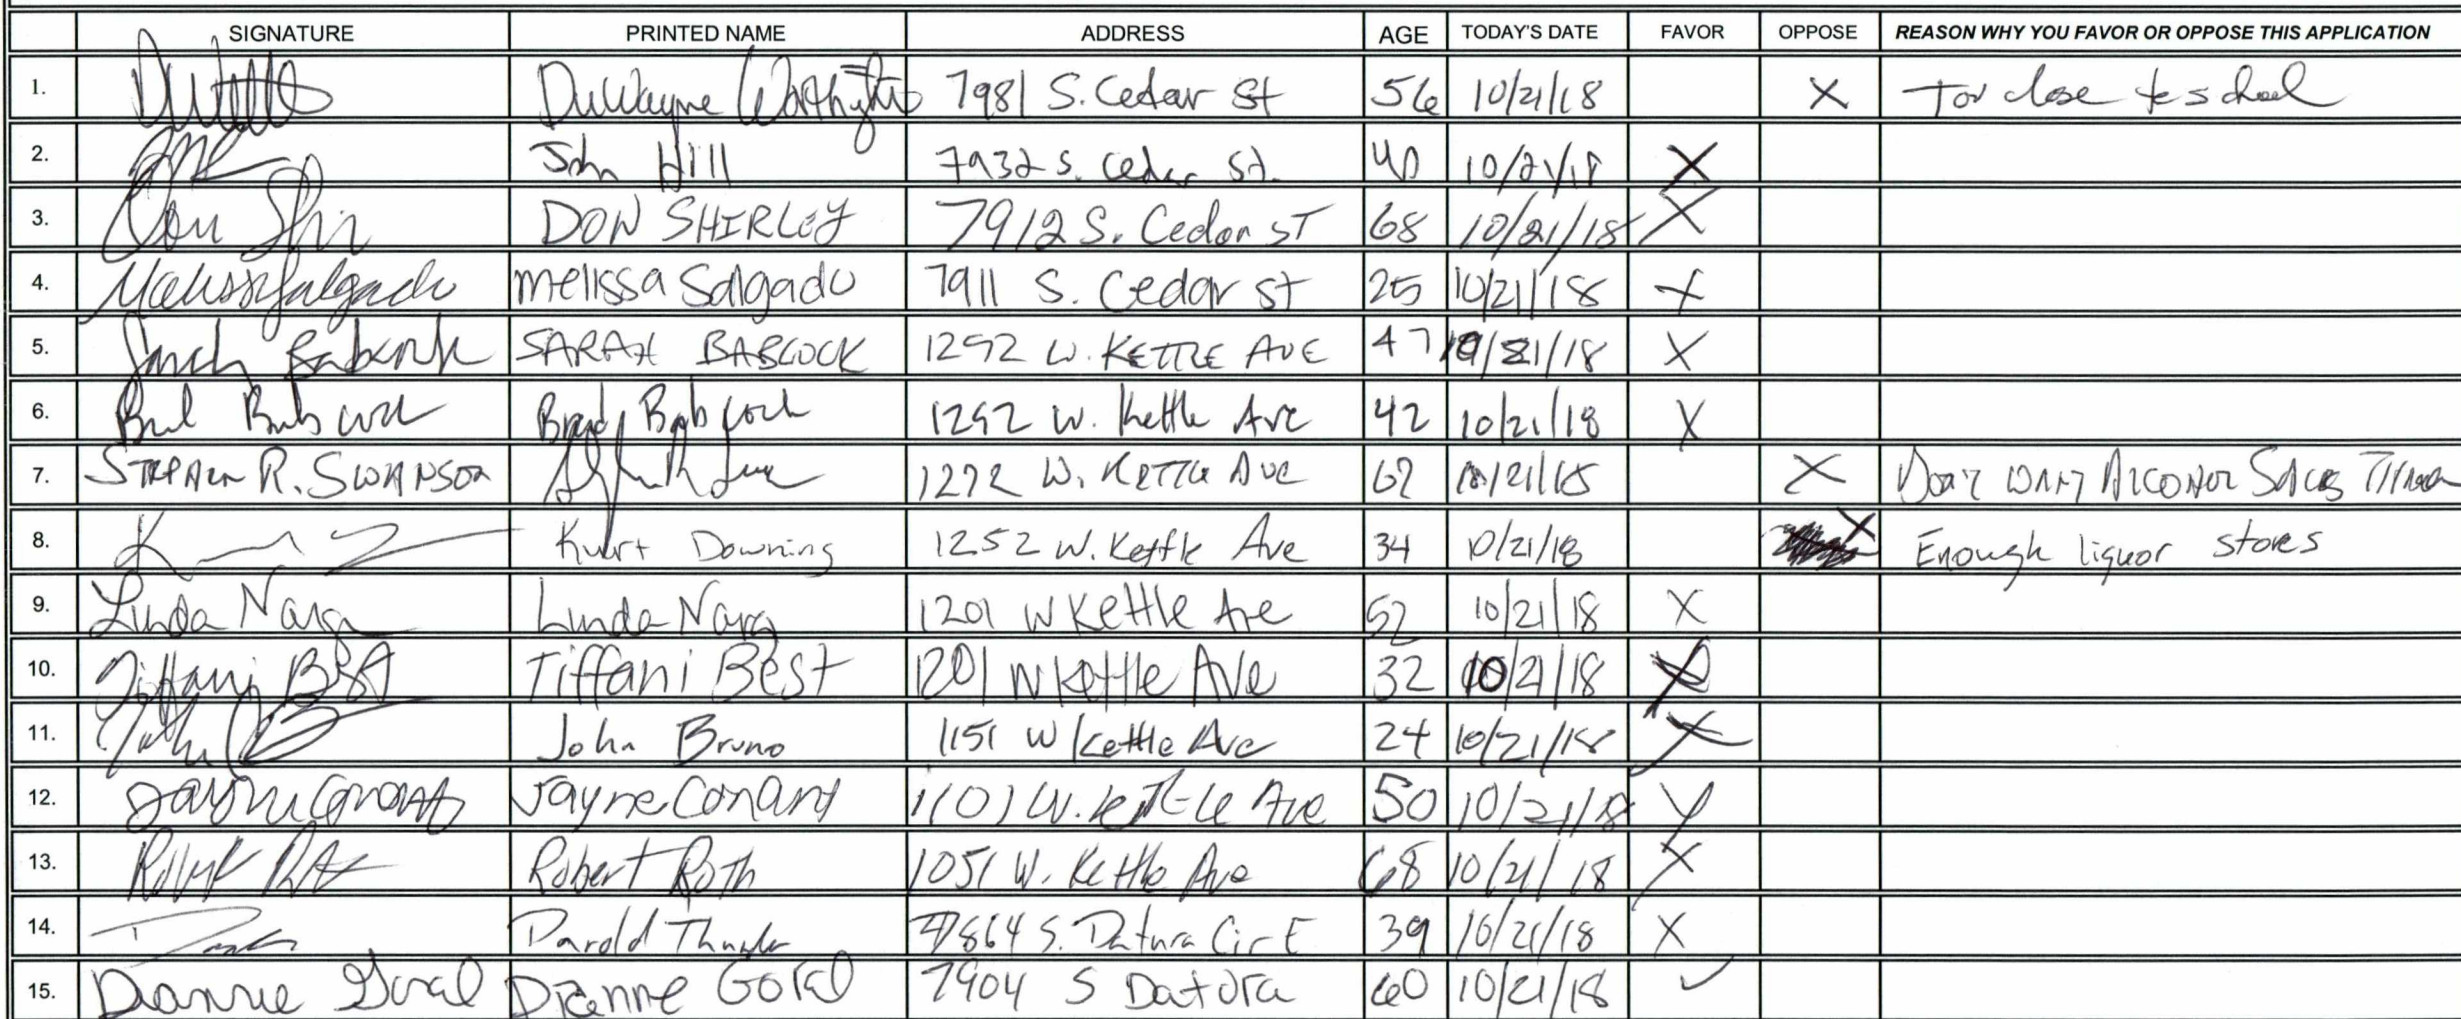 SIGNATURE PRINTED NAME ADDRESS AGE TODAY'S DATE FAVOR OPPOSE REASON WHY YOU FAVOR OR OPPOSE THIS APPLICATION
1. DuWayne 7981 S. Cedar St 56 10/21/18 X Too close to school
2. John Hill 7932 S. Cedar St. 40 10/21/18 X
3. Don DON SHIRLEY 7912 S. Cedar ST 68 10/21/18 X
4. Melissa Salgado melissa Salgado 7911 S. Cedar St 25 10/21/18 X
5. Sarah Babcock SARAH BABCOCK 1292 W. KETTLE AVE 47 10/21/18 X
6. Babcock Brady Babcock 1292 W. Kettle Ave 42 10/21/18 X
7. STEPHEN R. SWANSON 1272 W. KETTLE AVE 10/21/18 X DON'T WANT ALCOHOL SALES
8. Kurt Downing 1252 W. Kettle Ave 34 10/21/18 X Enough liquor stores
9. Linda Linda 1201 W Kettle Ave 52 10/21/18 X
10. Tiffani Best Tiffani Best 1201 W Kettle Ave 32 10/21/18 X
11. John John Bruno 1151 W Kettle Ave 24 10/21/18 X
12. Jayne Conant Jayne Conant 1101 W. Kettle Ave 50 10/21/18 X
13. Robert Roth 1051 W. Kettle Ave 68 10/21/18 X
14. Darold 7864 S. Datura Cir E 39 10/21/18 X
15. Dianne Goral Dianne Goral 7904 S Datura 60 10/21/18 ✓